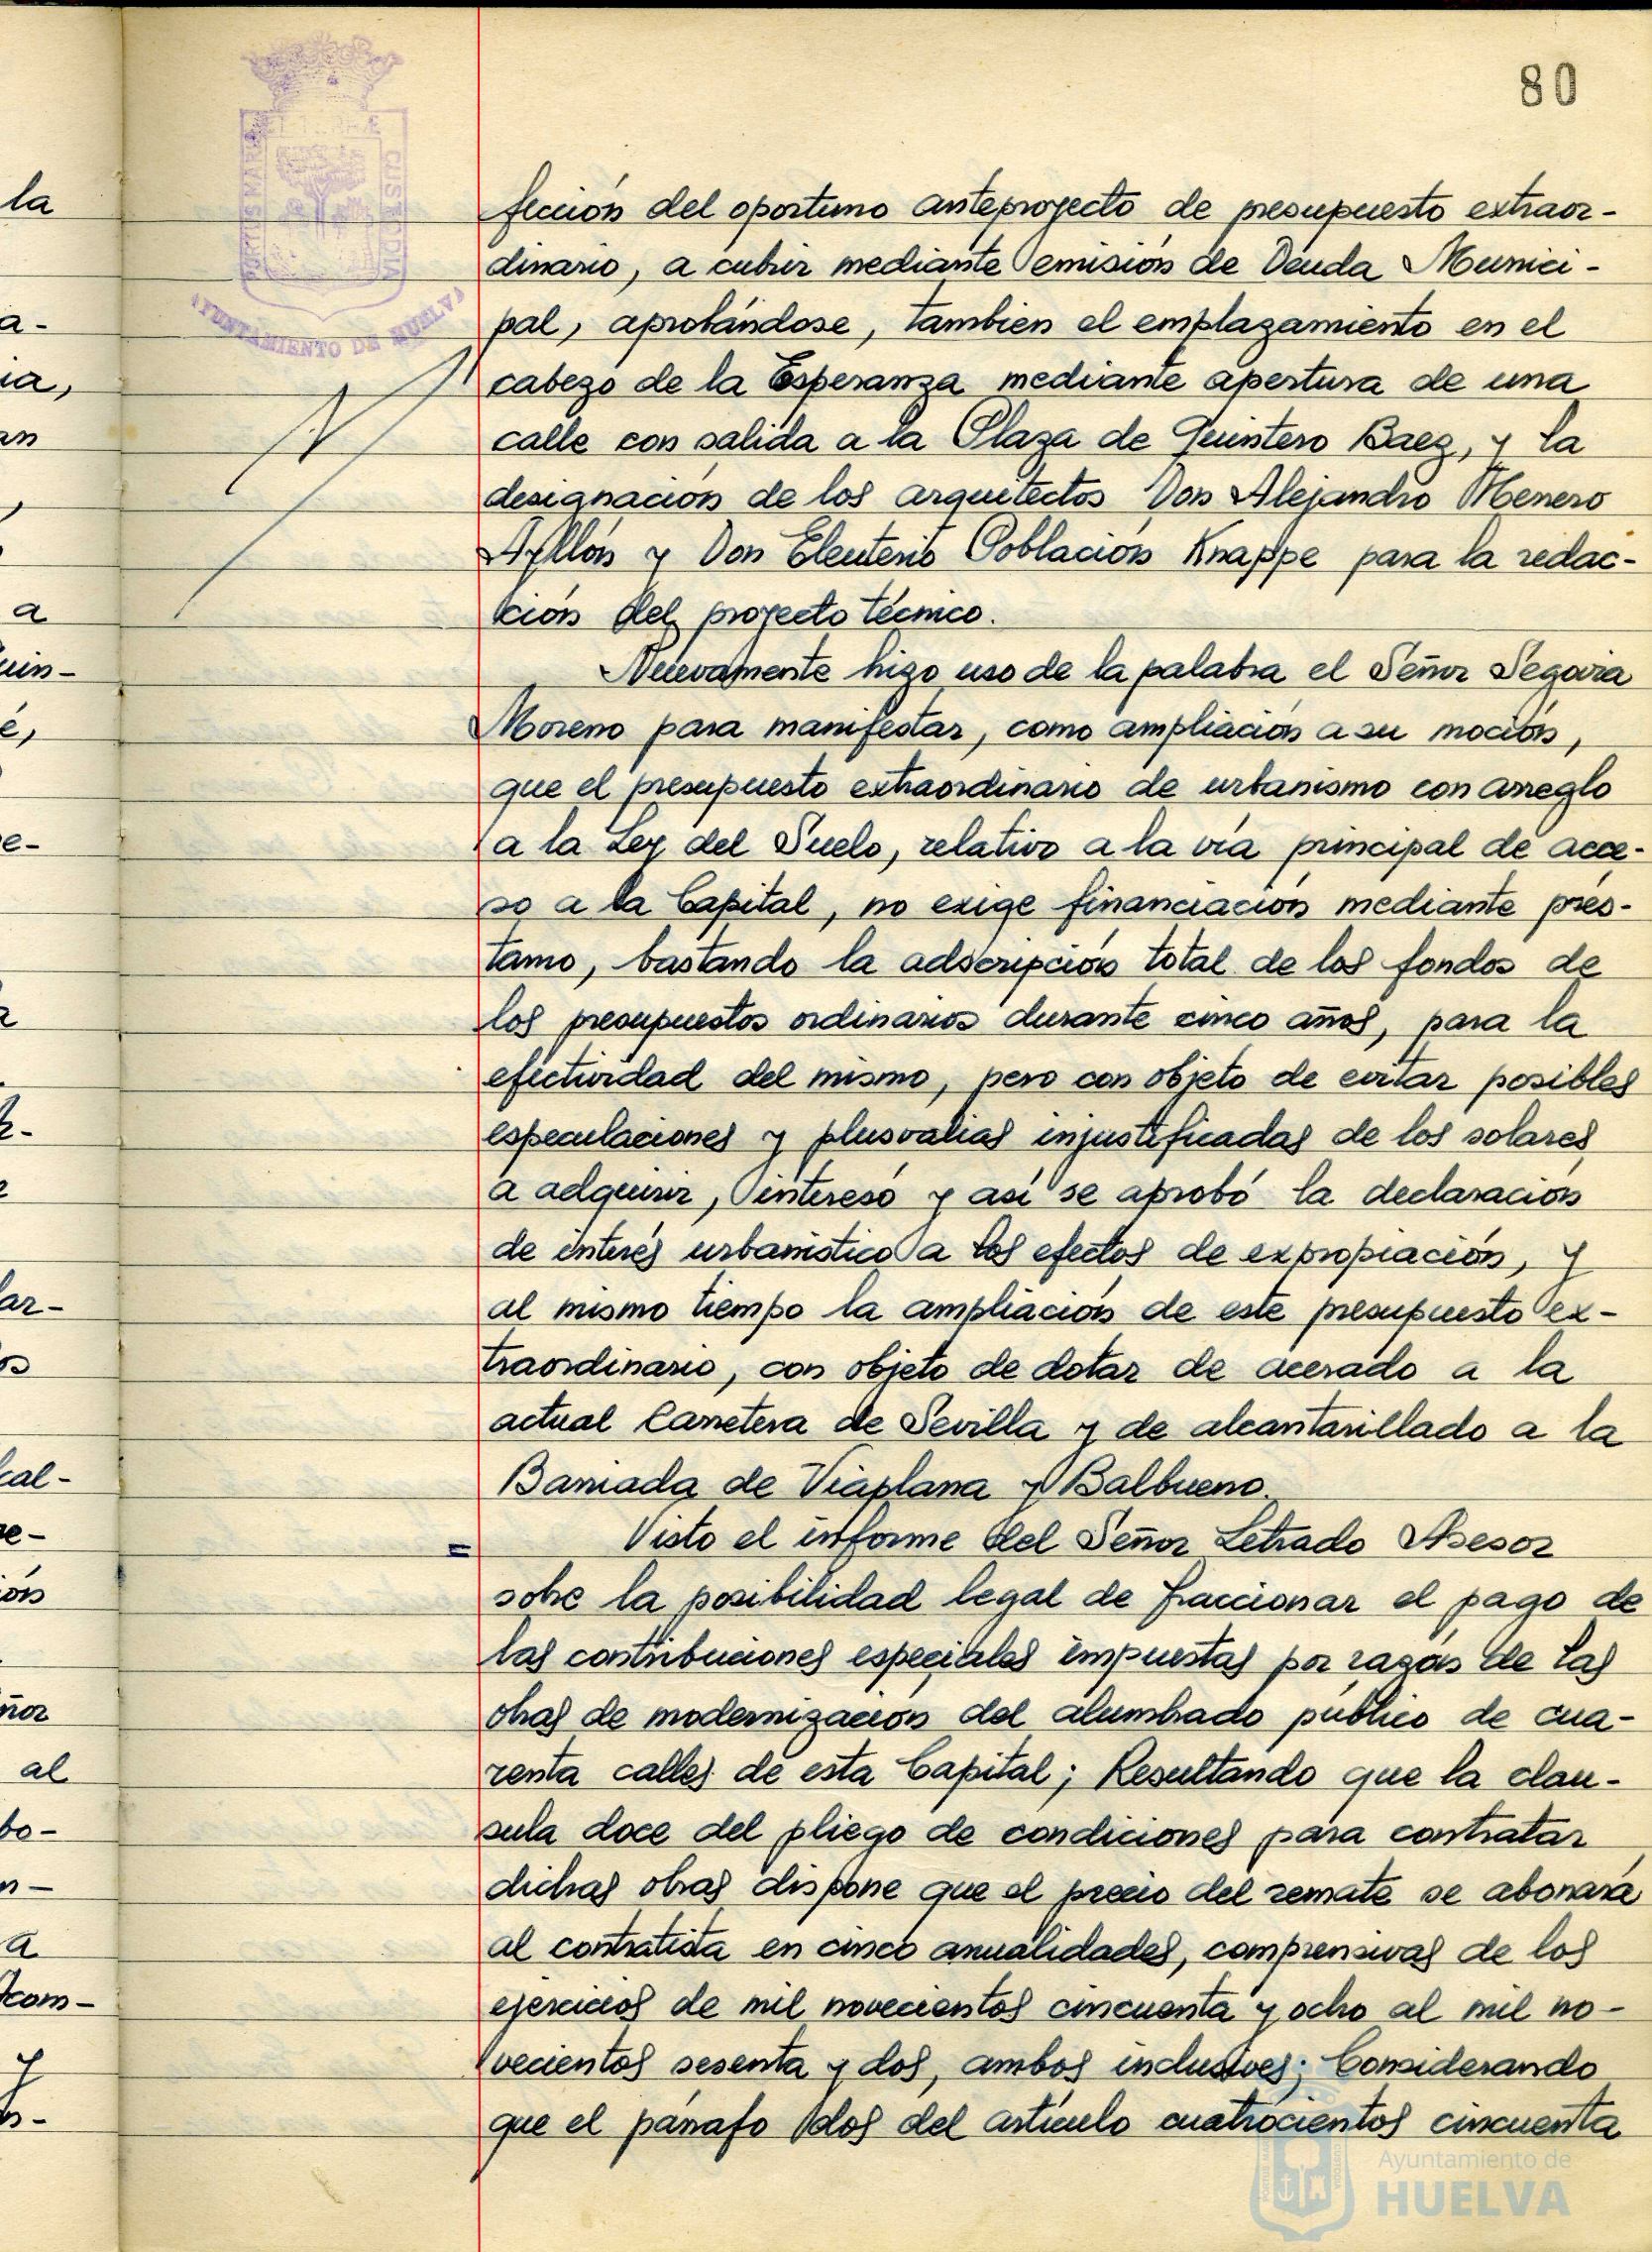 80
PORTUS MARIS ET TERRÆ CUSTODIA
AYUNTAMIENTO DE HUELVA
fección del oportuno anteproyecto de presupuesto extraor-
dinario, a cubrir mediante emisión de Deuda Munici-
pal, aprobándose, tambien el emplazamiento en el
cabezo de la Esperanza mediante apertura de una
calle con salida a la Plaza de Quintero Baez, y la
designación de los arquitectos Don Alejandro Herrero
Ayllón y Don Eleuterio Población Knappe para la redac-
ción del proyecto técnico.
Nuevamente hizo uso de la palabra el Señor Segovia
Moreno para manifestar, como ampliación a su moción,
que el presupuesto extraordinario de urbanismo con arreglo
a la Ley del Suelo, relativo a la vía principal de acce-
so a la Capital, no exige financiación mediante prés-
tamo, bastando la adscripción total de los fondos de
los presupuestos ordinarios durante cinco años, para la
efectividad del mismo, pero con objeto de evitar posibles
especulaciones y plusvalias injustificadas de los solares
a adquirir, interesó y así se aprobó la declaración
de interés urbanístico a los efectos de expropiación, y
al mismo tiempo la ampliación de este presupuesto ex-
traordinario, con objeto de dotar de acerado a la
actual Carretera de Sevilla y de alcantarillado a la
Barriada de Viaplana y Balbueno.
= Visto el informe del Señor Letrado Asesor
sobre la posibilidad legal de fraccionar el pago de
las contribuciones especiales impuestas por razón de las
obras de modernización del alumbrado público de cua-
renta calles de esta Capital; Resultando que la clau-
sula doce del pliego de condiciones para contratar
dichas obras dispone que el precio del remate se abonará
al contratista en cinco anualidades, comprensivas de los
ejercicios de mil novecientos cincuenta y ocho al mil no-
vecientos sesenta y dos, ambos inclusives; Considerando
que el párrafo dos del artículo cuatrocientos cincuenta
Ayuntamiento de
HUELVA